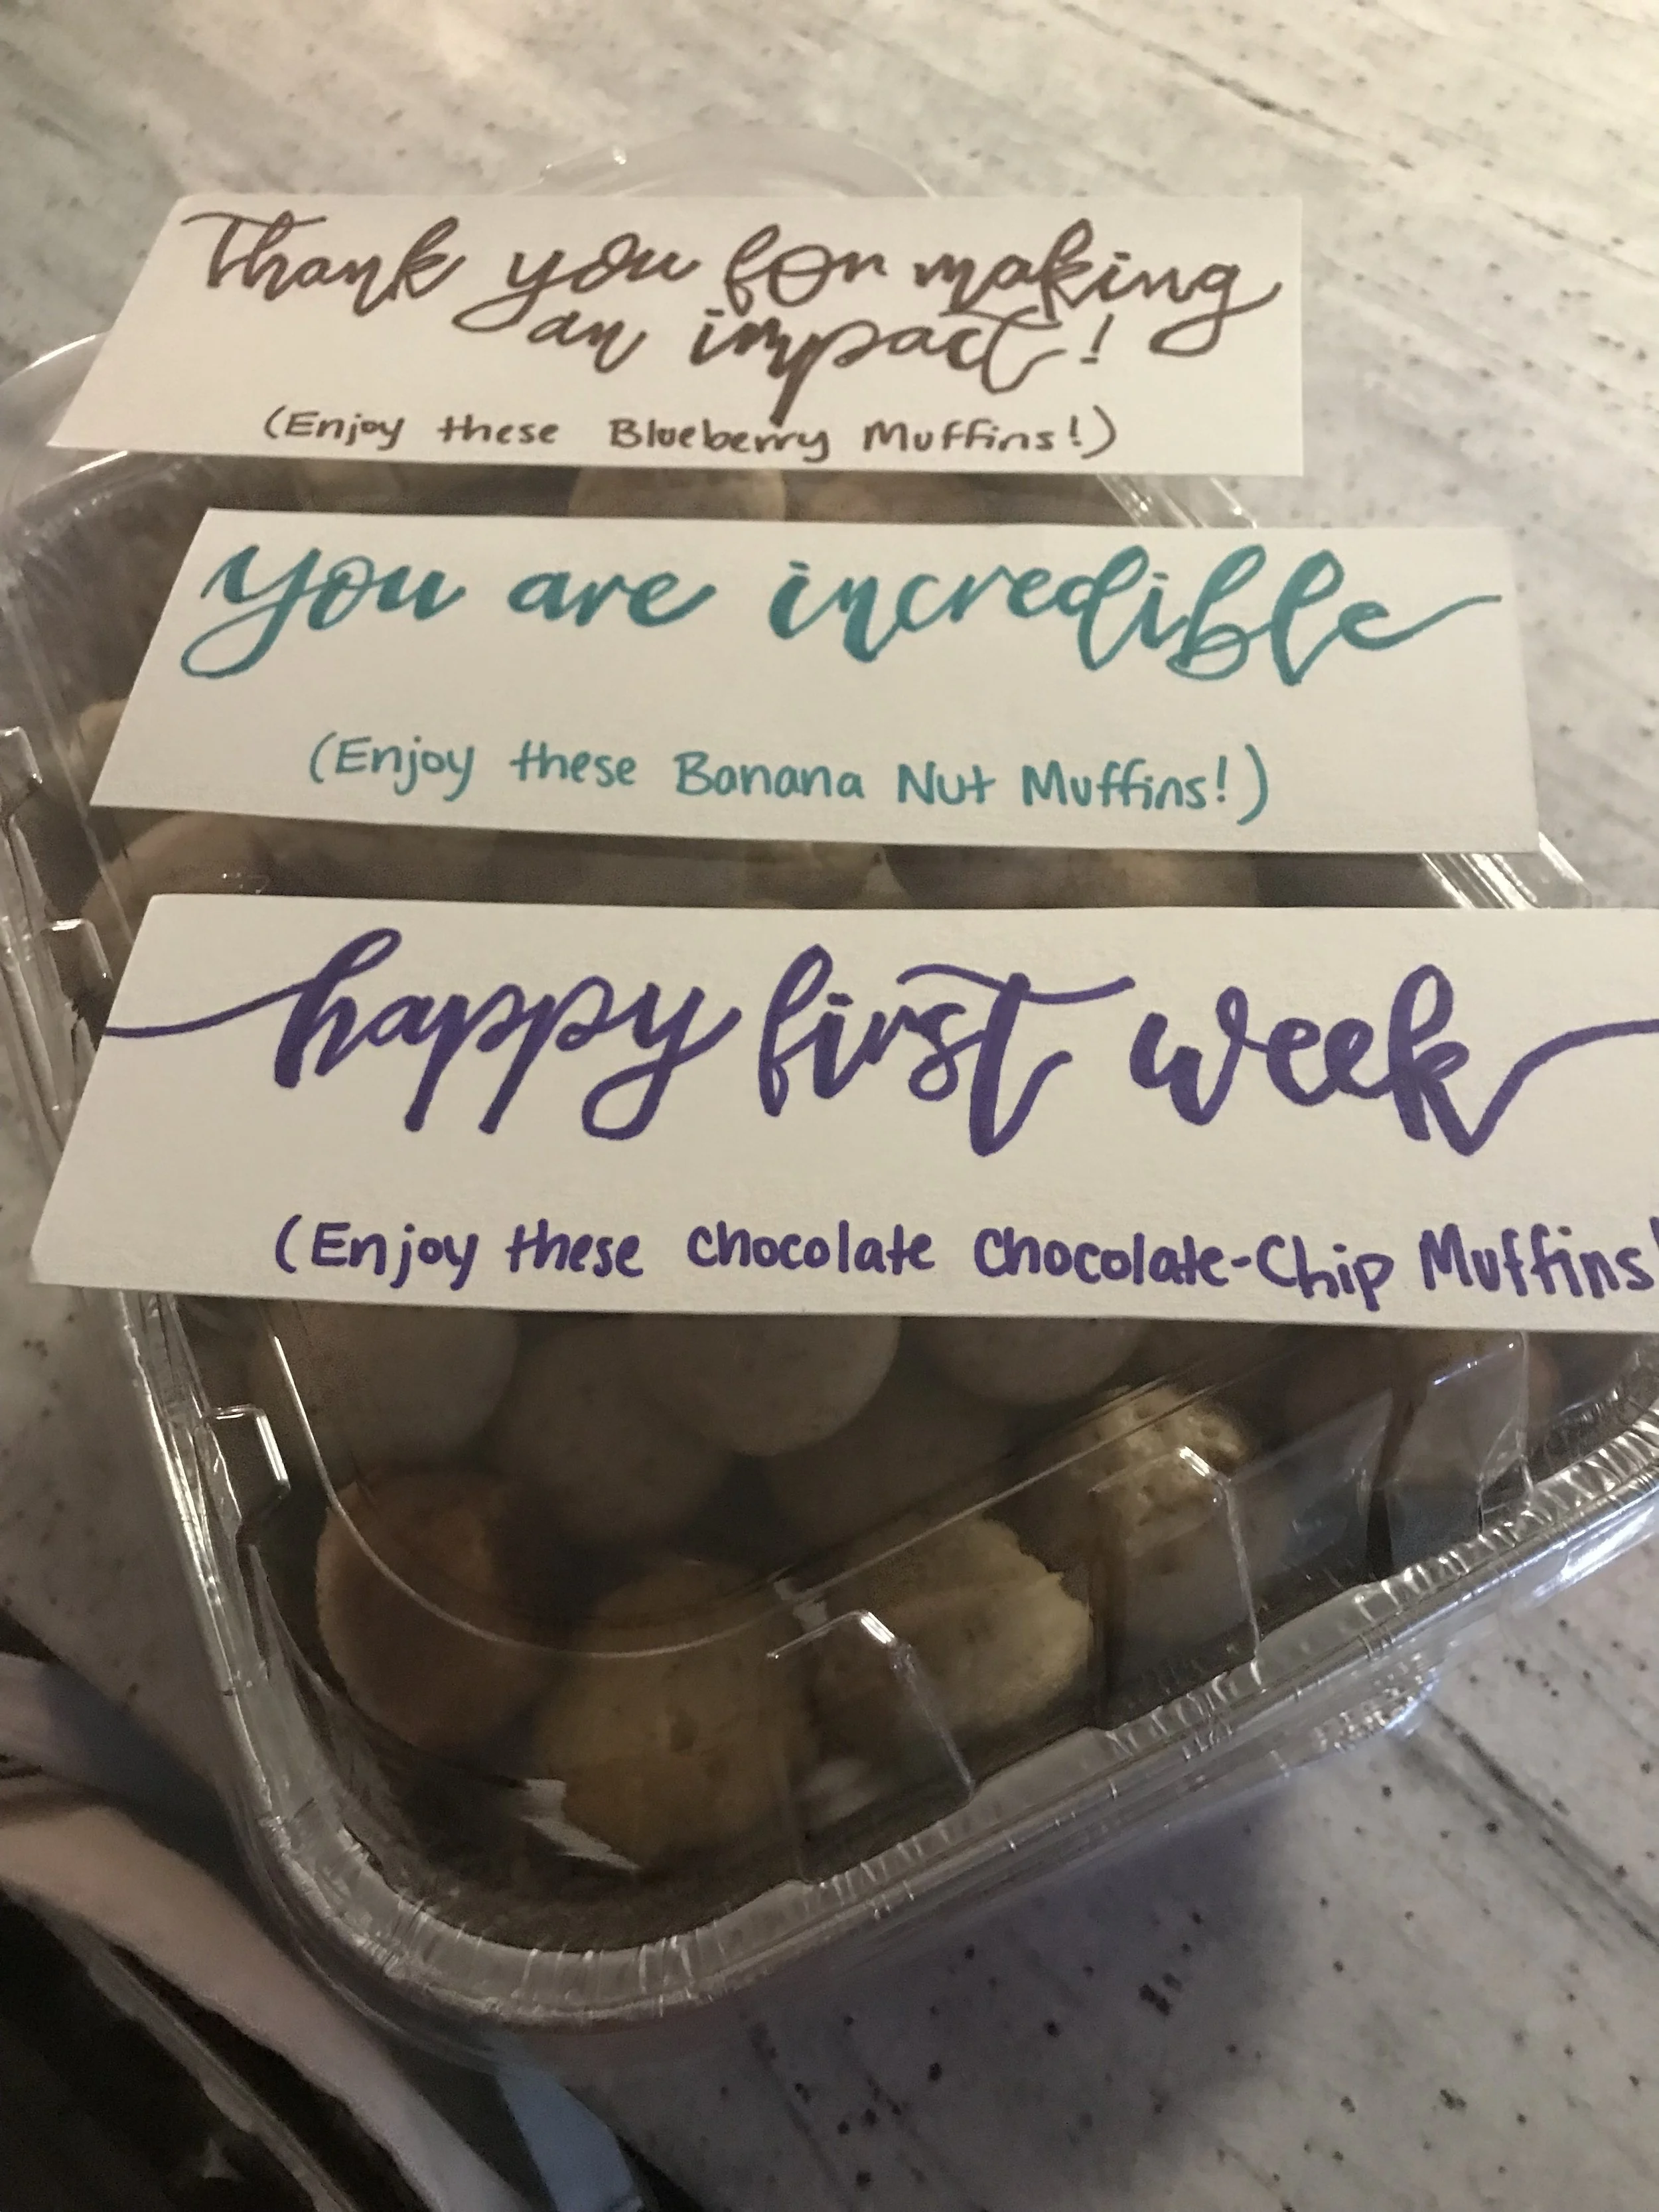 Thank you for making
an impact!
(Enjoy these Blueberry Muffins!)
you are incredible
(Enjoy these Banana Nut Muffins!)
happy first week
(Enjoy these Chocolate Chocolate-Chip Muffins!